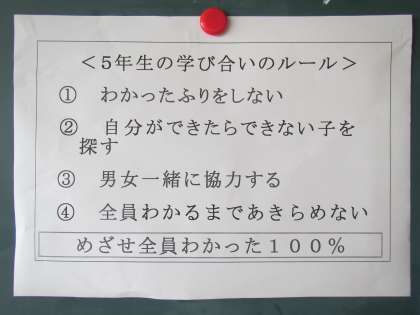 ＜５年生の学び合いのルール＞
①　わかったふりをしない
②　自分ができたらできない子を
探す
③　男女一緒に協力する
④　全員わかるまであきらめない
めざせ全員わかった１００％